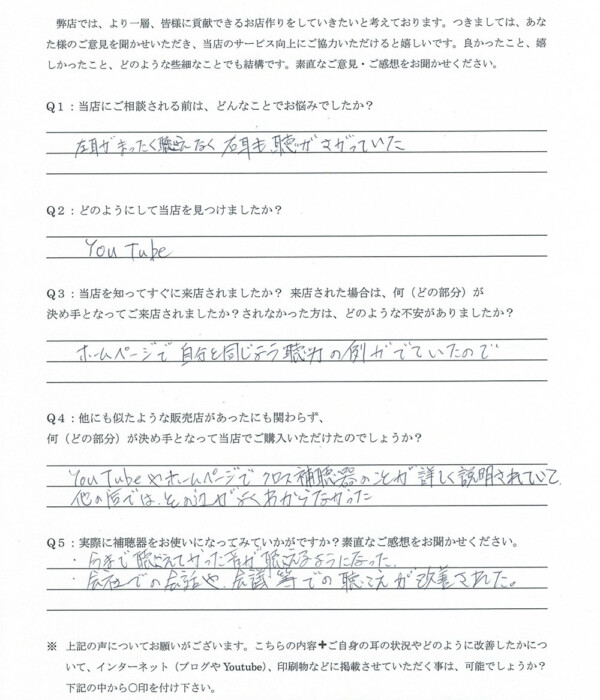 弊店では、より一層、皆様に貢献できるお店作りをしていきたいと考えております。つきましては、あな
た様のご意見を聞かせいただき、当店のサービス向上にご協力いただけると嬉しいです。良かったこと、嬉
しかったこと、どのような些細なことでも結構です。素直なご意見・ご感想をお聞かせください。
Q1：当店にご相談される前は、どんなことでお悩みでしたか？
左耳がまったく聴こえなく 右耳も聴力がさがっていた
Q2：どのようにして当店を見つけましたか？
YouTube
Q3：当店を知ってすぐに来店されましたか？ 来店された場合は、何（どの部分）が
決め手となってご来店されましたか？されなかった方は、どのような不安がありましたか？
ホームページで 自分と同じような聴力の例がでていたので
Q4：他にも似たような販売店があったにも関わらず、
何（どの部分）が決め手となって当店でご購入いただけたのでしょうか？
YouTubeやホームページで クロス補聴器のことが 詳しく説明されていて、
他の店では、その辺がよくわからなかった
Q5：実際に補聴器をお使いになってみていかがですか？素直なご感想をお聞かせください。
・今まで聴こえてなかった音が聴こえるようになった。
・会社での会話や、会議等での聴こえが改善された。
※ 上記の声についてお願いがございます。こちらの内容＋ご自身の耳の状況やどのように改善したかにつ
いて、インターネット（ブログや Youtube）、印刷物などに掲載させていただく事は、可能でしょうか？
下記の中から〇印を付け下さい。